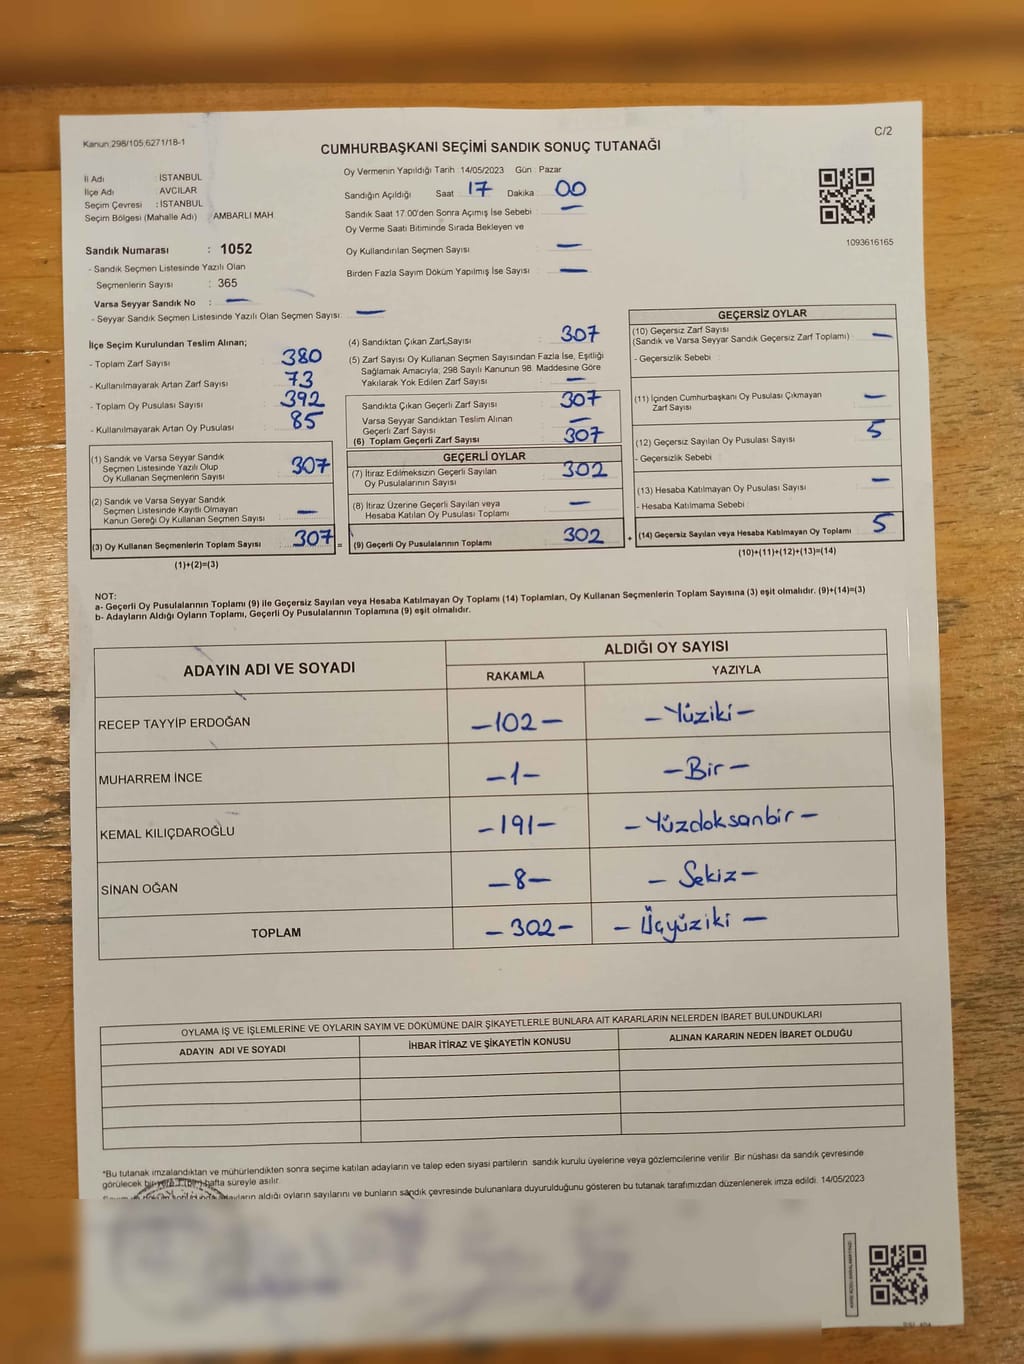 Kanun:298/105;6271/18-1
C/2
CUMHURBAŞKANI SEÇİMİ SANDIK SONUÇ TUTANAĞI
İl Adı : İSTANBUL
İlçe Adı : AVCILAR
Seçim Çevresi : İSTANBUL
Seçim Bölgesi (Mahalle Adı) : AMBARLI MAH.
Sandık Numarası : 1052
- Sandık Seçmen Listesinde Yazılı Olan
Seçmenlerin Sayısı : 365
Varsa Seyyar Sandık No : —
- Seyyar Sandık Seçmen Listesinde Yazılı Olan Seçmen Sayısı: —
Oy Vermenin Yapıldığı Tarih : 14/05/2023 Gün : Pazar
Sandığın Açıldığı Saat 17 Dakika 00
Sandık Saat 17.00'den Sonra Açımış İse Sebebi : —
Oy Verme Saati Bitiminde Sırada Bekleyen ve
Oy Kullandırılan Seçmen Sayısı : —
Birden Fazla Sayım Döküm Yapılmış İse Sayısı : —
1093616165
İlçe Seçim Kurulundan Teslim Alınan;
- Toplam Zarf Sayısı : 380
- Kullanılmayarak Artan Zarf Sayısı : 73
- Toplam Oy Pusulası Sayısı : 392
- Kullanılmayarak Artan Oy Pusulası : 85
(1) Sandık ve Varsa Seyyar Sandık
Seçmen Listesinde Yazılı Olup
Oy Kullanan Seçmenlerin Sayısı : 307
(2) Sandık ve Varsa Seyyar Sandık
Seçmen Listesinde Kayıtlı Olmayan
Kanun Gereği Oy Kullanan Seçmen Sayısı : —
(3) Oy Kullanan Seçmenlerin Toplam Sayısı : 307 =
(1)+(2)=(3)
(4) Sandıktan Çıkan Zarf Sayısı : 307
(5) Zarf Sayısı Oy Kullanan Seçmen Sayısından Fazla İse, Eşitliği
Sağlamak Amacıyla, 298 Sayılı Kanunun 98. Maddesine Göre
Yakılarak Yok Edilen Zarf Sayısı : —
Sandıkta Çıkan Geçerli Zarf Sayısı : 307
Varsa Seyyar Sandıktan Teslim Alınan
Geçerli Zarf Sayısı : —
(6) Toplam Geçerli Zarf Sayısı : 307
GEÇERLİ OYLAR
(7) İtiraz Edilmeksizin Geçerli Sayılan
Oy Pusulalarının Sayısı : 302
(8) İtiraz Üzerine Geçerli Sayılan veya
Hesaba Katılan Oy Pusulası Toplamı : —
(9) Geçerli Oy Pusulalarının Toplamı : 302 +
GEÇERSİZ OYLAR
(10) Geçersiz Zarf Sayısı
(Sandık ve Varsa Seyyar Sandık Geçersiz Zarf Toplamı) : —
- Geçersizlik Sebebi :
(11) İçinden Cumhurbaşkanı Oy Pusulası Çıkmayan
Zarf Sayısı : —
(12) Geçersiz Sayılan Oy Pusulası Sayısı : 5
- Geçersizlik Sebebi :
(13) Hesaba Katılmayan Oy Pusulası Sayısı : —
- Hesaba Katılmama Sebebi :
(14) Geçersiz Sayılan veya Hesaba Katılmayan Oy Toplamı : 5
(10)+(11)+(12)+(13)=(14)
NOT:
a- Geçerli Oy Pusulalarının Toplamı (9) ile Geçersiz Sayılan veya Hesaba Katılmayan Oy Toplamı (14) Toplamları, Oy Kullanan Seçmenlerin Toplam Sayısına (3) eşit olmalıdır. (9)+(14)=(3)
b- Adayların Aldığı Oyların Toplamı, Geçerli Oy Pusulalarının Toplamına (9) eşit olmalıdır.
ADAYIN ADI VE SOYADI
ALDIĞI OY SAYISI
RAKAMLA YAZIYLA
RECEP TAYYİP ERDOĞAN –102– –Yüziki–
MUHARREM İNCE –1– –Bir–
KEMAL KILIÇDAROĞLU –191– –Yüzdoksanbir–
SİNAN OĞAN –8– –Sekiz–
TOPLAM –302– –Üçyüziki–
OYLAMA İŞ VE İŞLEMLERİNE VE OYLARIN SAYIM VE DÖKÜMÜNE DAİR ŞİKAYETLERLE BUNLARA AİT KARARLARIN NELERDEN İBARET BULUNDUKLARI
ADAYIN ADI VE SOYADI İHBAR İTİRAZ VE ŞİKAYETİN KONUSU ALINAN KARARIN NEDEN İBARET OLDUĞU
*Bu tutanak imzalandıktan ve mühürlendikten sonra seçime katılan adayların ve talep eden siyasi partilerin sandık kurulu üyelerine veya gözlemcilerine verilir. Bir nüshası da sandık çevresinde
görülecek bir yere 1 (bir) hafta süreyle asılır.
adayların aldığı oyların sayılarını ve bunların sandık çevresinde bulunanlara duyurulduğunu gösteren bu tutanak tarafımızdan düzenlenerek imza edildi. 14/05/2023